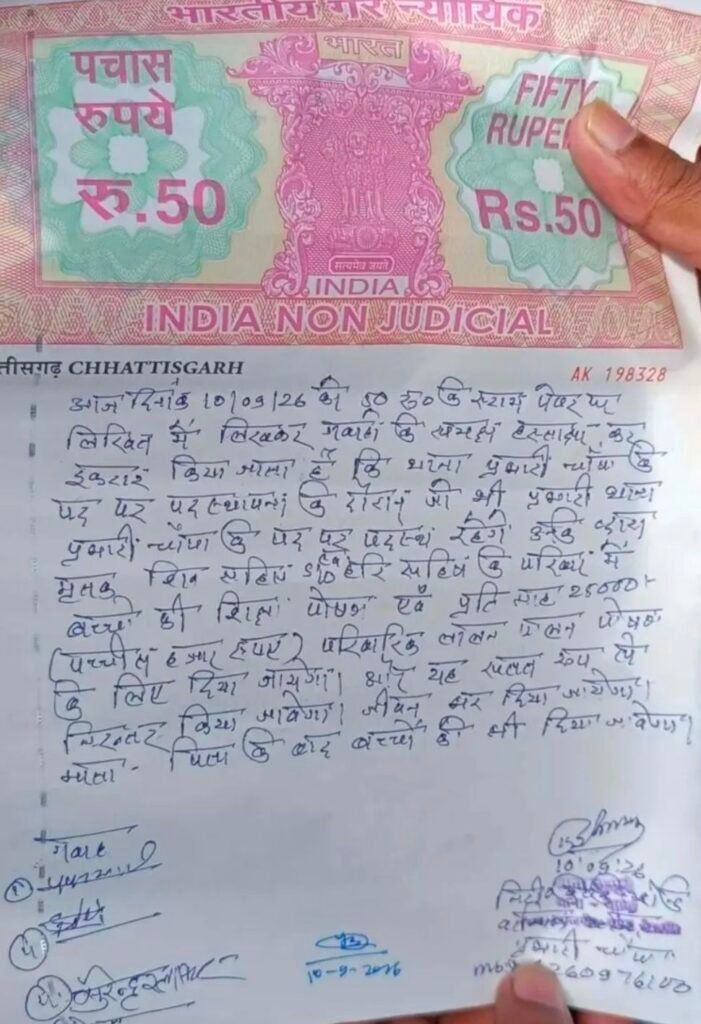 भारतीय गैर न्यायिक
भारत
पचास
रुपये
रु.50
FIFTY
RUPEE
Rs.50
सत्यमेव जयते
INDIA
INDIA NON JUDICIAL
तीसगढ़ CHHATTISGARH
AK 198328
आज दिनांक 10/09/26 को 50 रु० के स्टाम्प पेपर पर
लिखित में लिखकर गवाहों के समक्ष हस्ताक्षर कर
इकरार किया जाता है कि थाना प्रभारी चाँपा के
पद पर पदस्थापना के दौरान जो भी प्रभारी थाना
प्रभारी चाँपा के पद पर पदस्थ रहेंगे उनके द्वारा
मृतक शिव सहिस S/o हरि सहिस के परिवार में
बच्चों की शिक्षा पोषण एवं प्रति माह 25000/-
(पच्चीस हजार रुपए) परिवारिक लालन पालन पोषण
के लिए दिया जायेगा। और यह सतत रूप से
निरन्तर किया जावेगा। जीवन भर दिया जायेगा।
माता - पिता के बाद बच्चों को भी दिया जावेगा।
गवाह
10-9-2026
10'09'26
प्रभारी चाँपा